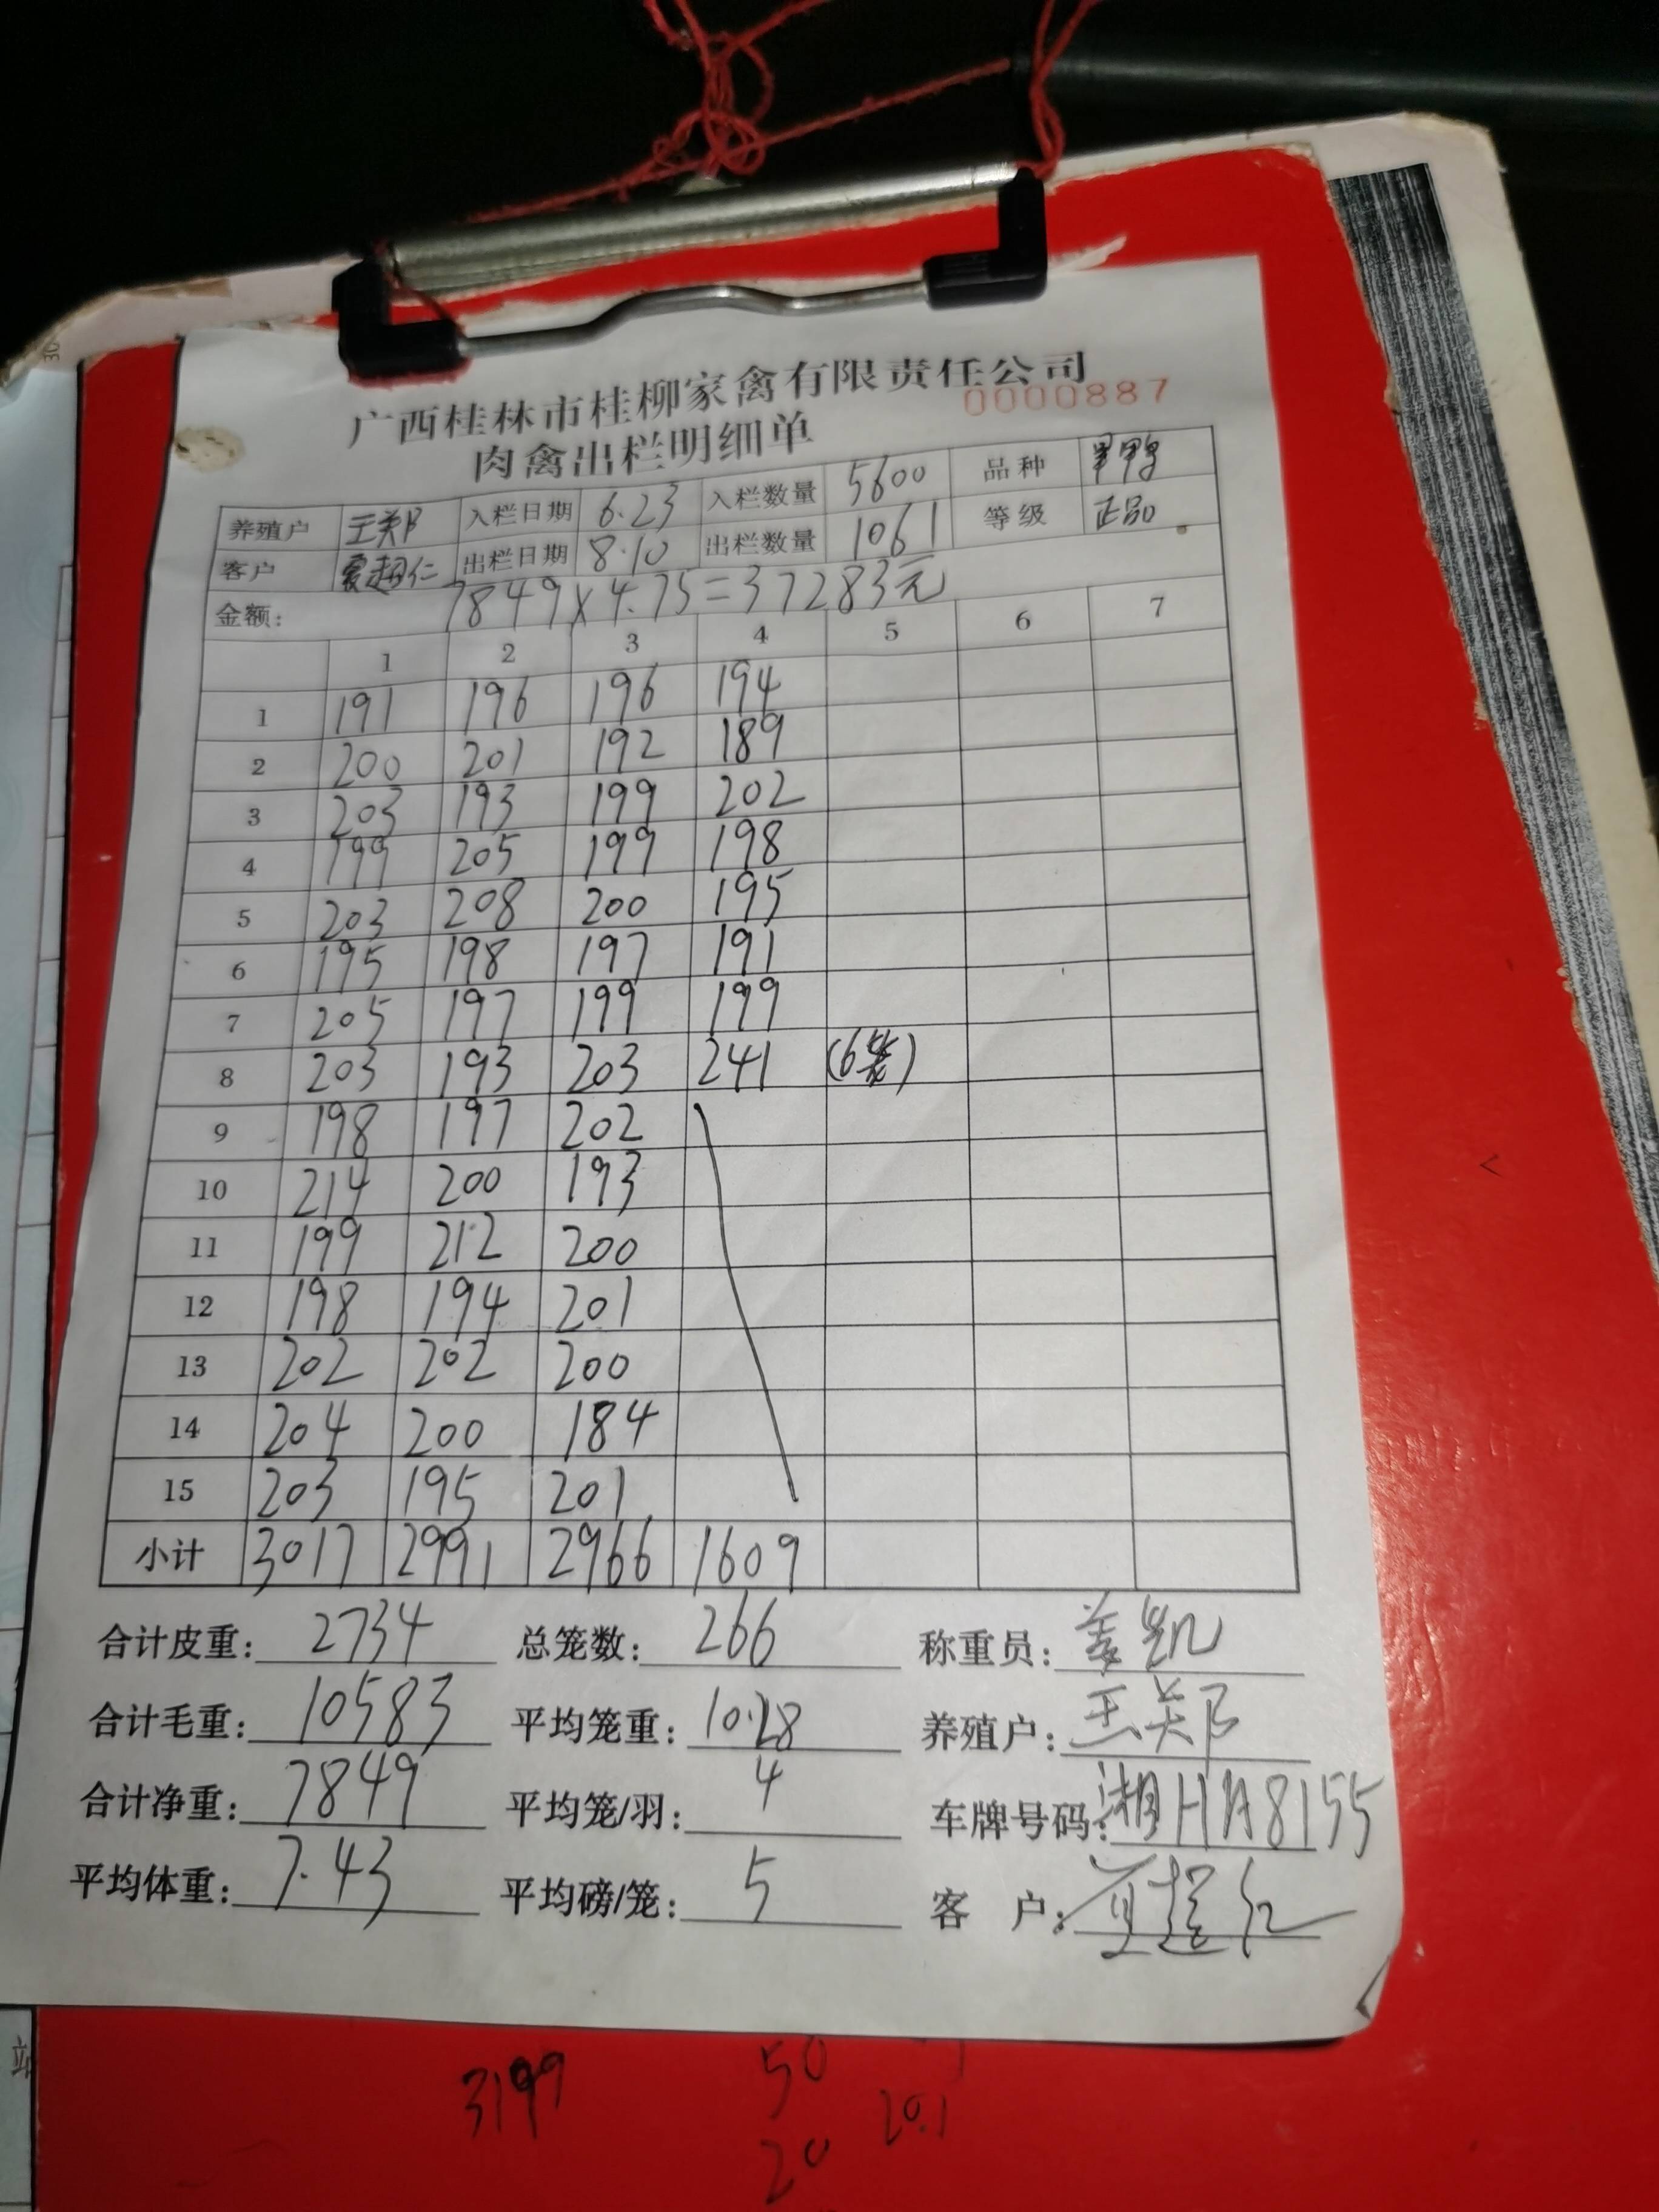 广西桂林市桂柳家禽有限责任公司
0000887
肉禽出栏明细单
养殖户 王关阝 入栏日期 6.23 入栏数量 5600 品种
客户 夏超仁 出栏日期 8.10 出栏数量 1061 等级 正品
金额: 7849×4.75=37283元
1 2 3 4 5 6 7
1 191 196 196 194
2 200 201 192 189
3 203 193 199 202
4 199 205 199 198
5 203 208 200 195
6 195 198 197 191
7 205 197 199 199
8 203 193 203 241 (6笼)
9 198 197 202
10 214 200 193
11 199 212 200
12 198 194 201
13 202 202 200
14 204 200 184
15 203 195 201
小计 3017 2991 2966 1609
合计皮重: 2734 总笼数: 266 称重员:
合计毛重: 10583 平均笼重: 10.28 养殖户: 王关阝
合计净重: 7849 平均笼/羽: 4 车牌号码: 湘HA8155
平均体重: 7.43 平均磅/笼: 5 客 户: 夏超仁
站
3199 50
20.1
20